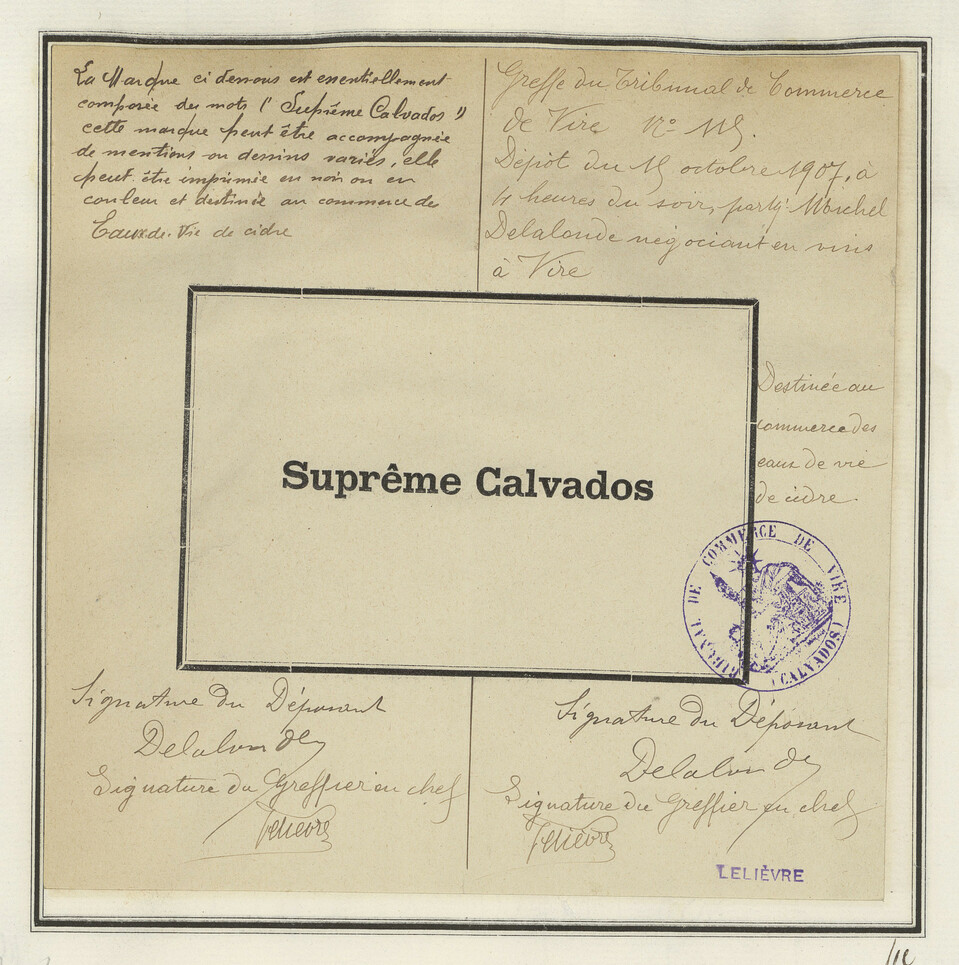 La Marque ci dessous est essentiellement
composée des mots (" Suprême Calvados ")
cette marque peut être accompagnée
de mentions ou dessins variés, elle
peut être imprimée en noir ou en
couleur et destinée au commerce des
Eaux-de-Vie de cidre
Greffe du Tribunal de Commerce
de Vire N°
Dépôt du 15 octobre 1907, à
4 heures du soir, par
Delalonde négociant en vins
à Vire
Suprême Calvados
Destinée au
commerce des
eaux de vie
de cidre.
TRIBUNAL DE COMMERCE DE VIRE (CALVADOS)
Signature du Déposant
Delalonde
Signature du Greffier en chef
Lelièvre
Signature du Déposant
Delalonde
Signature du Greffier en chef
Lelièvre
LELIÈVRE